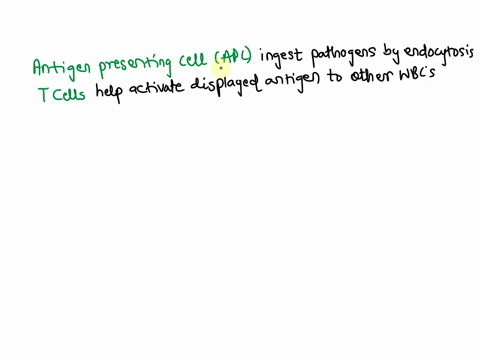 Antigen presenting cell (APC) ingest pathogens by endocytosis
T Cells help activate displayed antigen to other WBC's